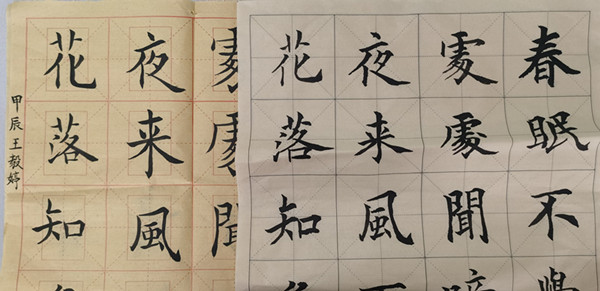 春眠不
處處聞
夜来風
花落知
夜来風
花落知
甲辰王毅婷